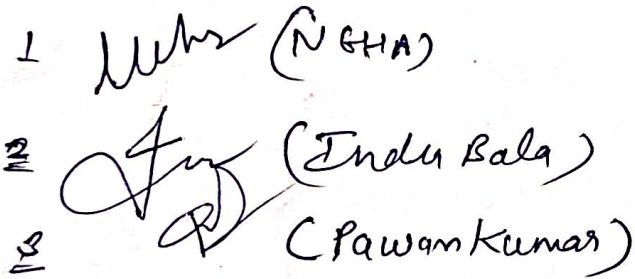 1 Neha (NEHA)
2 (Indu Bala)
3 (Pawan Kumar)